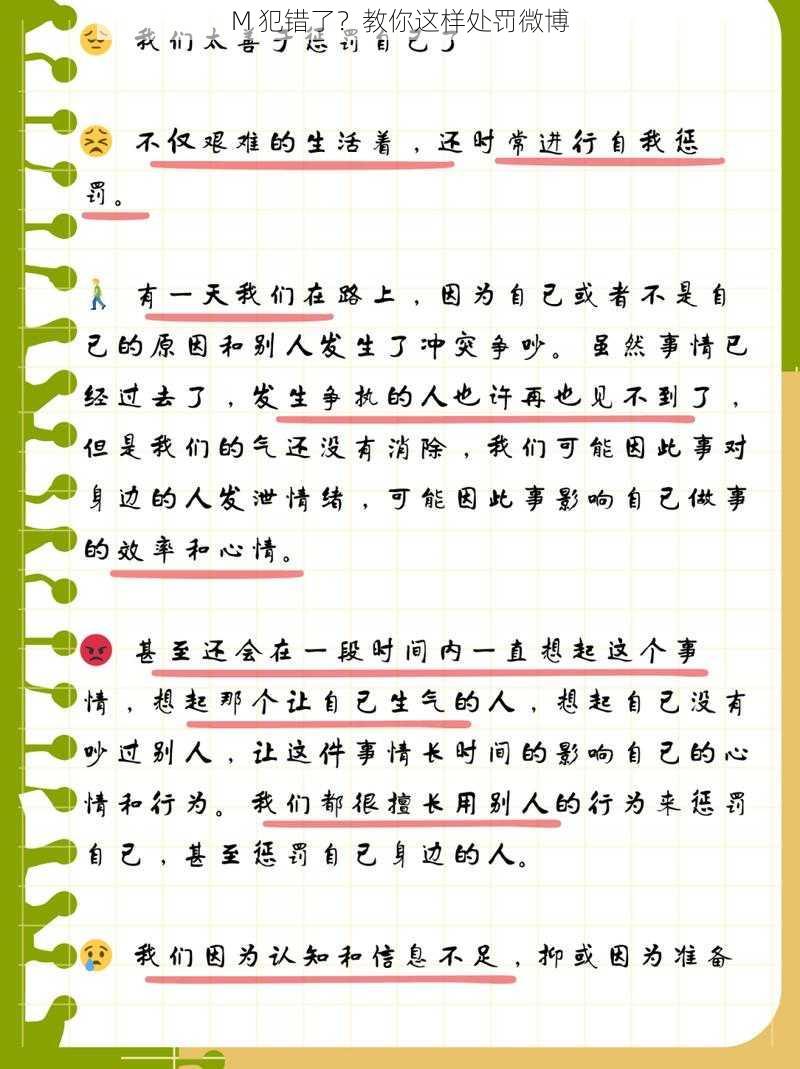 M 犯错了？教你这样处罚微博
我们太善于惩罚自己了
不仅艰难的生活着，还时常进行自我惩
罚。
有一天我们在路上，因为自己或者不是自
己的原因和别人发生了冲突争吵。虽然事情已
经过去了，发生争执的人也许再也见不到了，
但是我们的气还没有消除，我们可能因此事对
身边的人发泄情绪，可能因此事影响自己做事
的效率和心情。
甚至还会在一段时间内一直想起这个事
情，想起那个让自己生气的人，想起自己没有
吵过别人，让这件事情长时间的影响自己的心
情和行为。我们都很擅长用别人的行为来惩罚
自己，甚至惩罚自己身边的人。
我们因为认知和信息不足，抑或因为准备